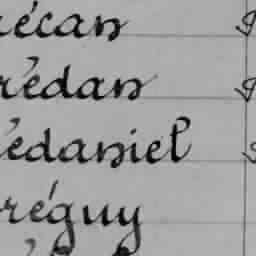 récan
rédan
édaniel
réguy